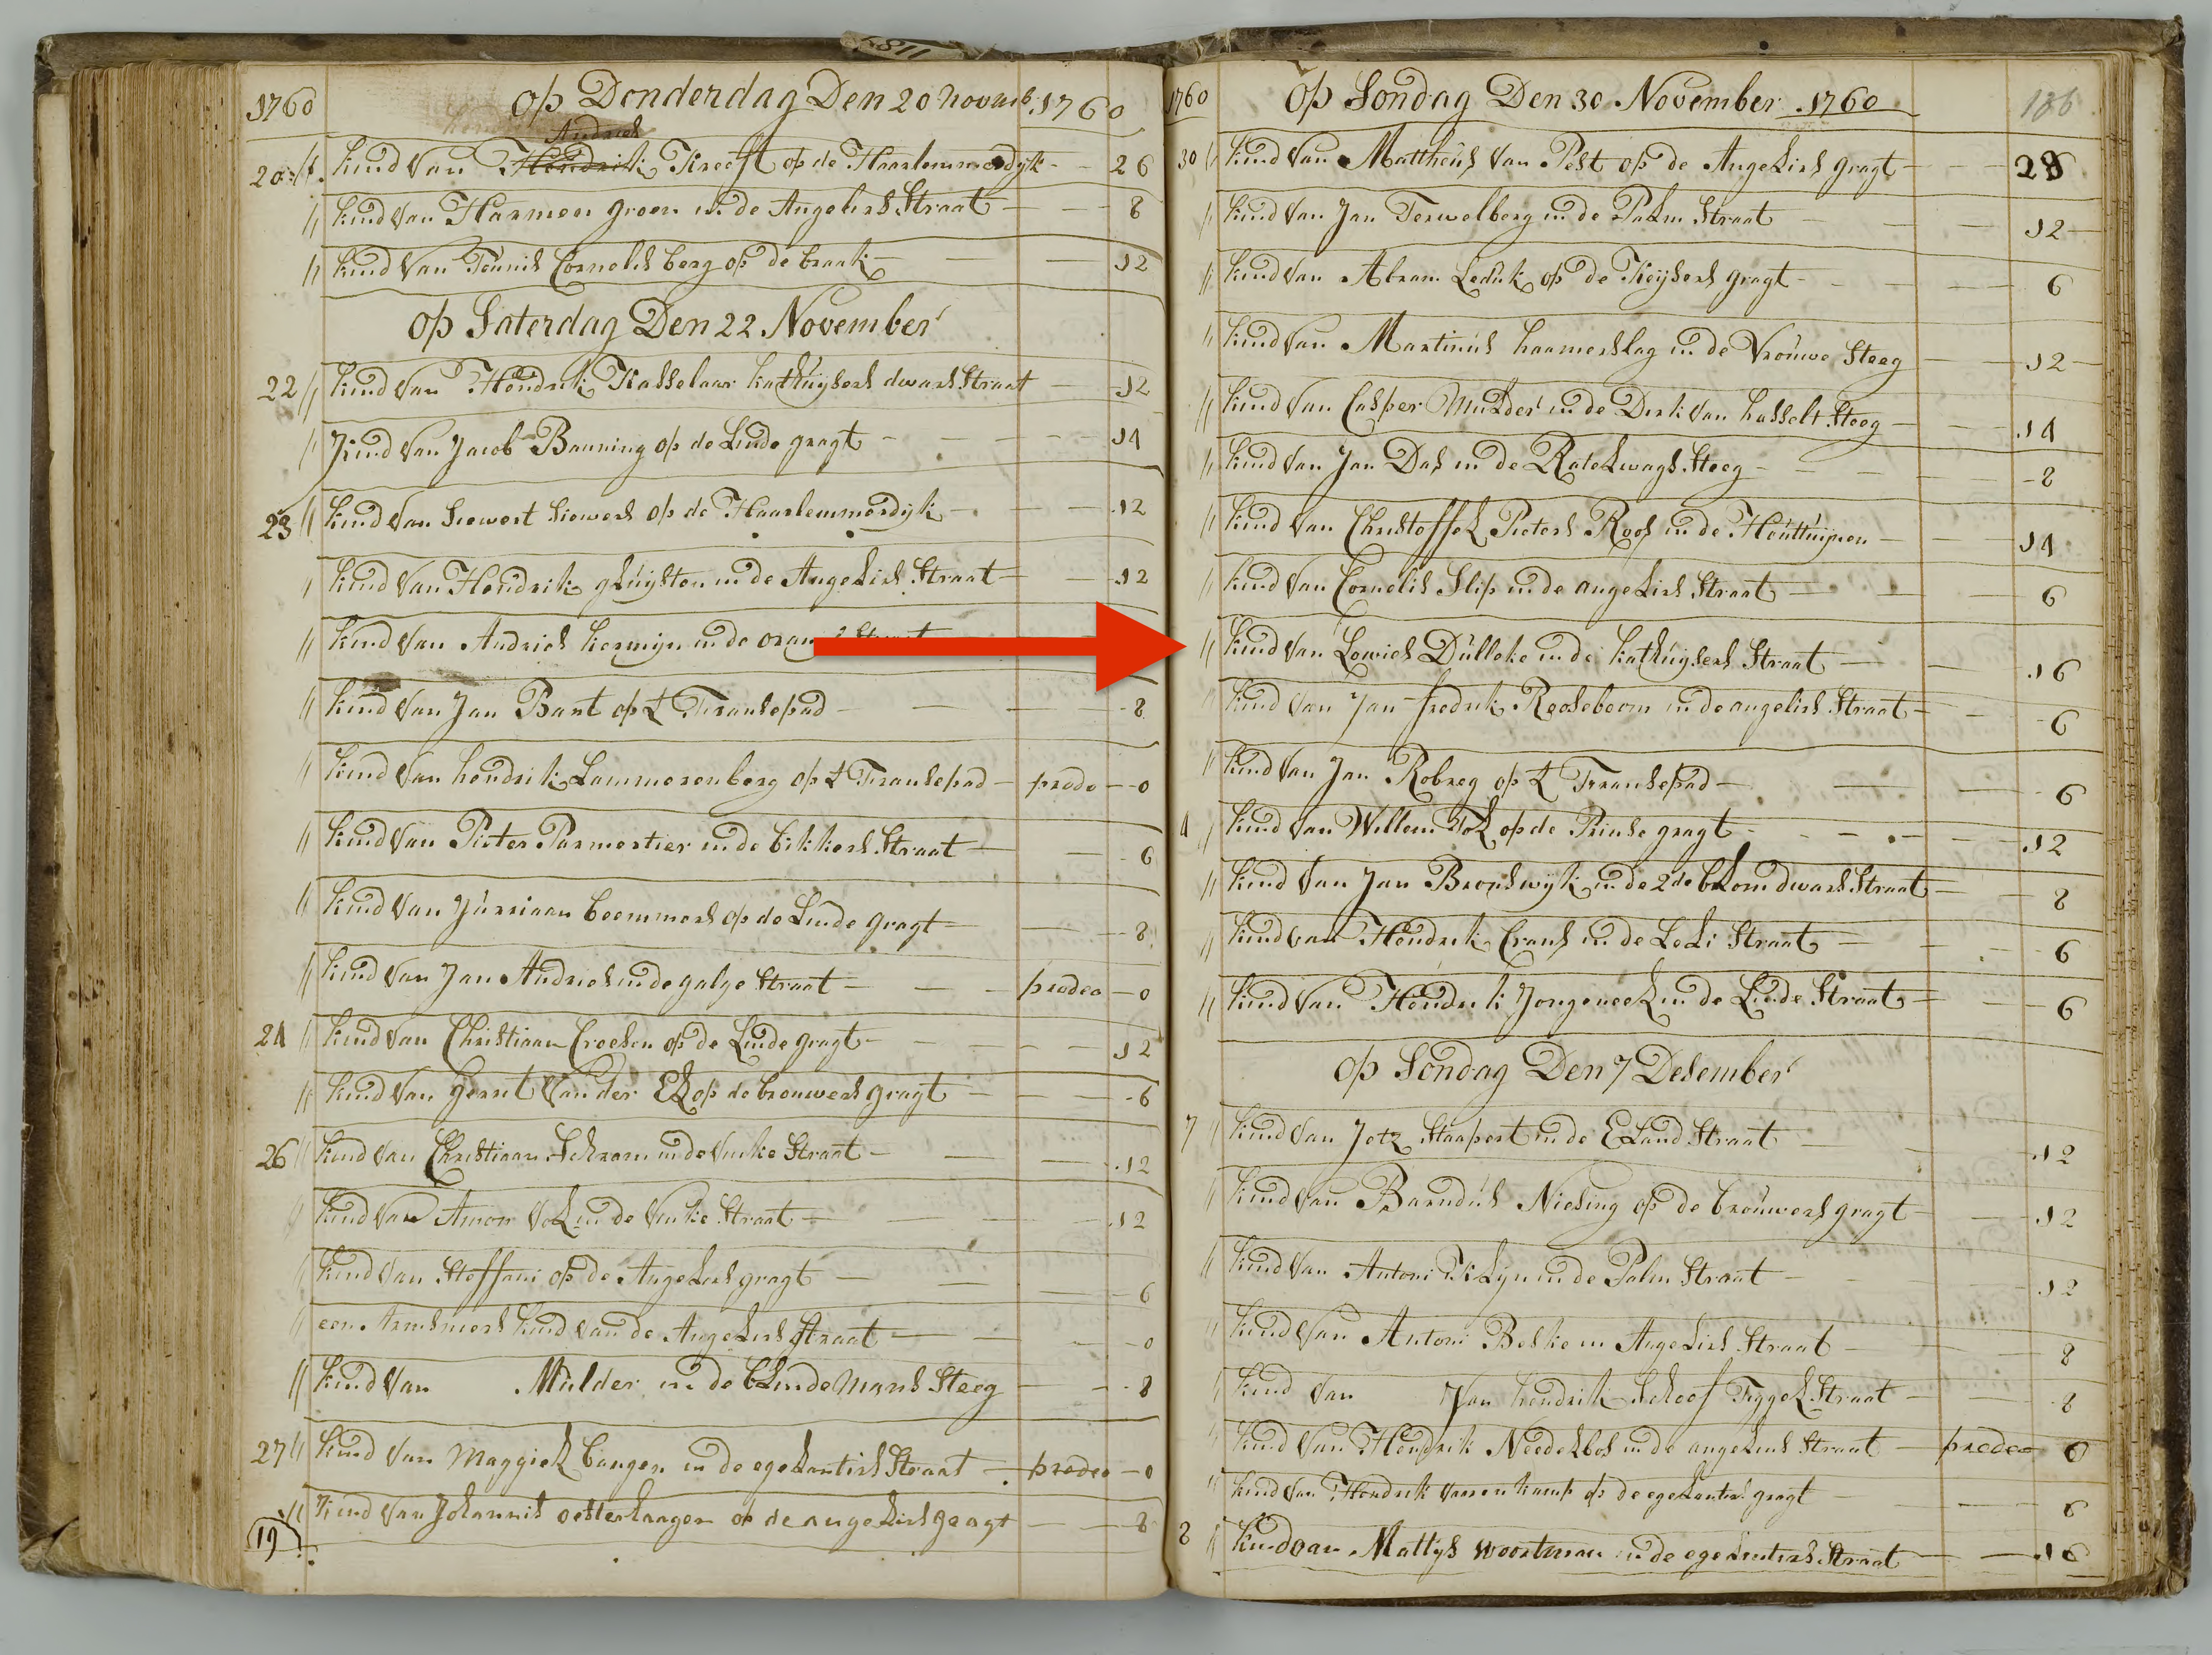 1760 op Donderdag Den 20 Novemb: 1760
Andries
20 // kind van Hendrik Kreeft op de Haarlemmerdyk 26
// kind van Harmen groen in de Angeliers Straat 8
// kind van Teunis Cornelis berg op de braak 12
op Saterdag Den 22 November
22 // kind van Hendrik Kasselaar kathuysers dwars Straat 12
// kind van Jacob Banning op de Linde gragt 14
23 // kind van Siewert Siewers op de Haarlemmerdyk 12
kind van Hendrik gluysten in de Angeliers Straat 12
// kind van Andries kermyn in de oranje Straat
// kind van Jan Bant op t Fransepad 8
// kind van hendrik Lammerenberg op t Fransepad prodeo 0
// kind van Pieter Parmentier in de bikkers Straat 6
// kind van Jurriaan beemmers op de Linde gragt 8
// kind van Jan Andries in de galge Straat prodeo 0
24 // kind van Christiaan Croesen op de Linde gragt 12
// kind van gerrit van der El op de brouwers gragt 6
26 // kind van Christiaan Schram in de Vinke Straat 12
// kind van Amon Vol in de Vinke Straat 12
// kind van Steffani op de Angeliers gragt 6
een Armmens kind van de Angeliers Straat 0
// kind van Mulder in de blindemans Steeg 8
27 // kind van Maggiel bangen in de egelantiers Straat prodeo 0
// kind van Johannis oosterlaagen op de angeliers gragt 8
19
1760 op Sondag Den 30 November 1760 186
30 // kind van Mattheus van Pelt op de Angeliers gragt 28
// kind van Jan Terwelberg in de Palm Straat 12
// kind van Abram Leduk op de Keysers gragt 6
// kind van Martinus haamerslag in de Vrouwe Steeg 12
// kind van Casper Mulder in de Dirk van hasselt Steeg 14
// kind van Jan Das in de Ratelwags Steeg 8
// kind van Christoffel Pieters Roos in de Houttuynen 14
// kind van Cornelis Slip in de angeliers Straat 6
// kind van Lowies Dulleke in de kathuysers Straat 16
// kind van Jan fredrik Rooseboom in de angeliers Straat 6
// kind van Jan Robreg op t Fransepad 6
4 // kind van Willem Tol op de Prinse gragt 12
// kind van Jan Bronswyk in de 2de blom dwars Straat 8
// kind van Hendrik Crans in de Leli Straat 6
// kind van Hendrik Jongeneel in de Linde Straat 6
op Sondag Den 7 Desember
7 // kind van Jetz Staapert in de Eland Straat 12
// kind van Barndus Niesing op de brouwers gragt 12
// kind van Antoni Kilyn in de Palm Straat 12
// kind van Antoni Beske in Angeliers Straat 8
// kind van Jan hendrik Schoof Tyggel Straat 8
// kind van Hendrik Nedelbos in de angeliers Straat prodeo 0
// kind van Hendrik Varenkamp op de egelantiers gragt 6
8 // kind van Mattys Woortman in de egelantiers Straat 16